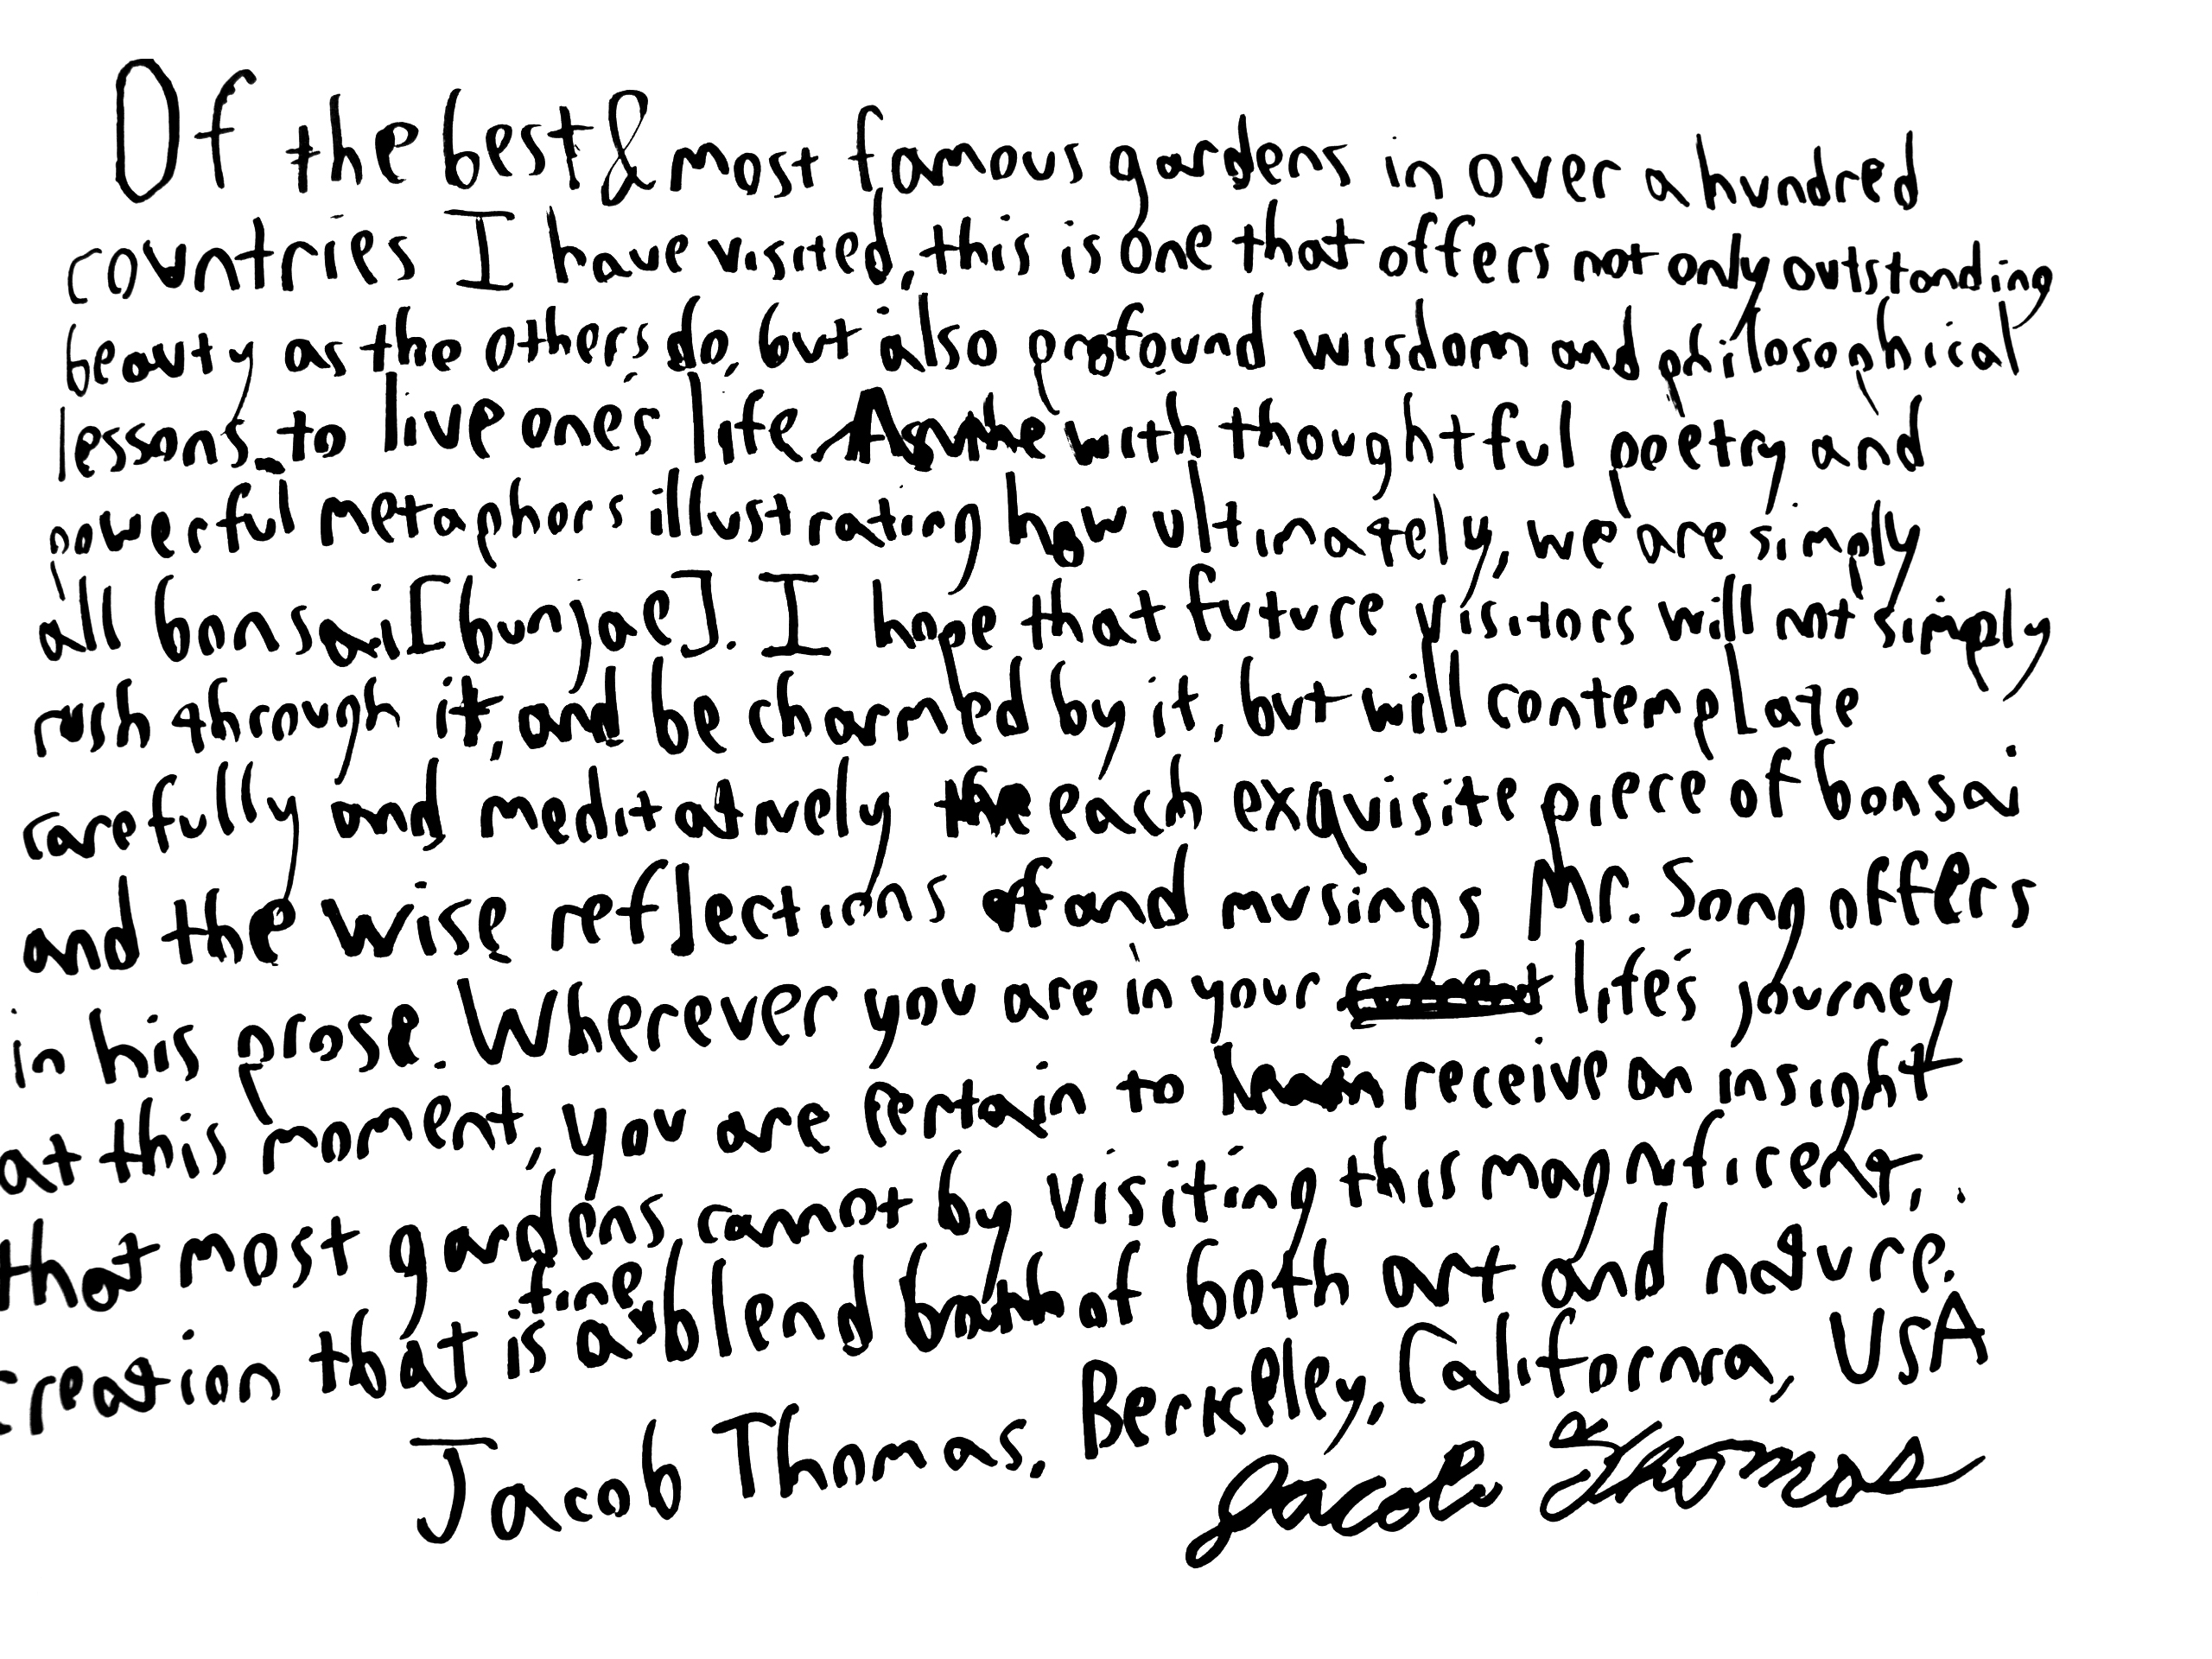 Of the best & most famous gardens in over a hundred
countries I have visited, this is one that offers not only outstanding
beauty as the others do, but also profound wisdom and philosophical
lessons to live one's life with thoughtful poetry and
powerful metaphors illustrating how ultimately, we are simply
all bonsai [bunjae]. I hope that future visitors will not simply
rush through it, and be charmed by it, but will contemplate
carefully and meditatively each exquisite piece of bonsai
and the wise reflections and musings Mr. Song offers
in his prose. Wherever you are in your life's journey
at this moment, you are certain to receive an insight
that most gardens cannot by visiting this magnificent,
creation that is a fine blend of both art and nature.
Jacob Thomas, Berkeley, California, USA
Jacob Thomas